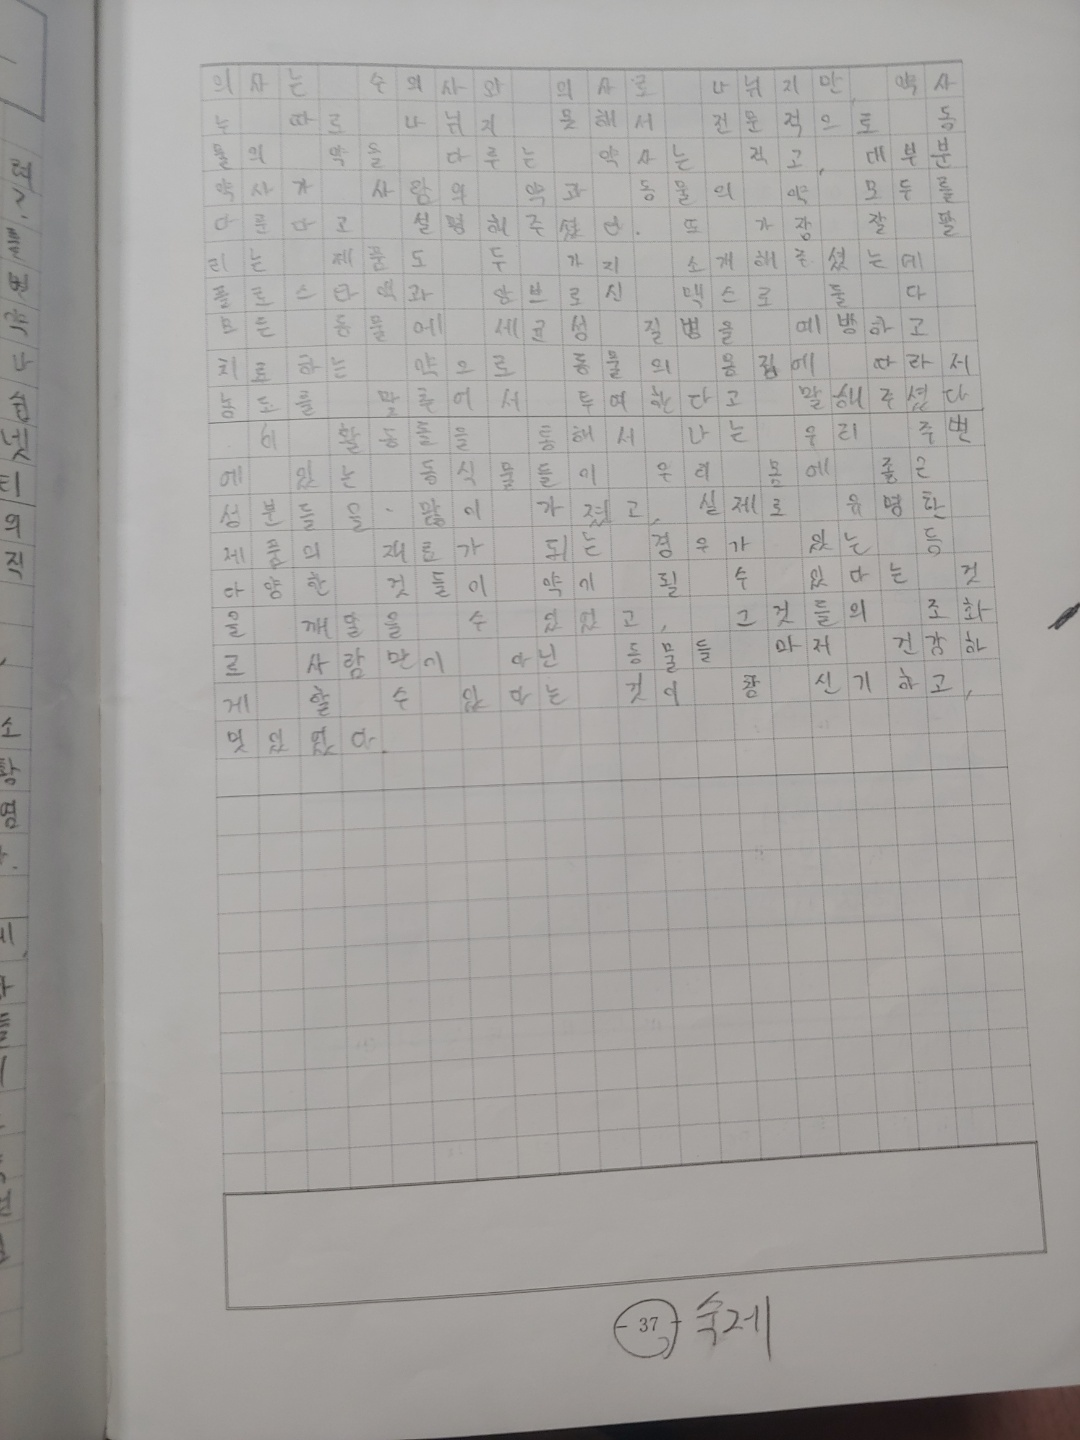 의사는 수의사와 의사로 나뉘지만, 약사
는 따로 나뉘지 못해서 전문적으로 동
물의 약을 다루는 약사는 적고, 대부분
약사가 사람의 약과 동물의 약 모두를
다룬다고 설명해주셨다. 또 가장 잘 팔
리는 제품도 두 가지 소개해주셨는데
플로스타맥과 암브로신 맥스로 둘 다
모든 동물에 세균성 질병을 예방하고
치료하는 약으로 동물의 몸집에 따라서
농도를 맞추어서 투여한다고 말해주셨다
이 활동들을 통해서 나는 우리 주변
에 있는 동식물들이 우리 몸에 좋은
성분들을 많이 가졌고, 실제로 유명한
제품의 재료가 되는 경우가 있는 등
다양한 것들이 약이 될 수 있다는 것
을 깨달을 수 있었고, 그것들의 조화
로 사람만이 아닌 동물들 마저 건강하
게 할 수 있다는 것이 참 신기하고,
멋있었다.
- 37 -
숙제